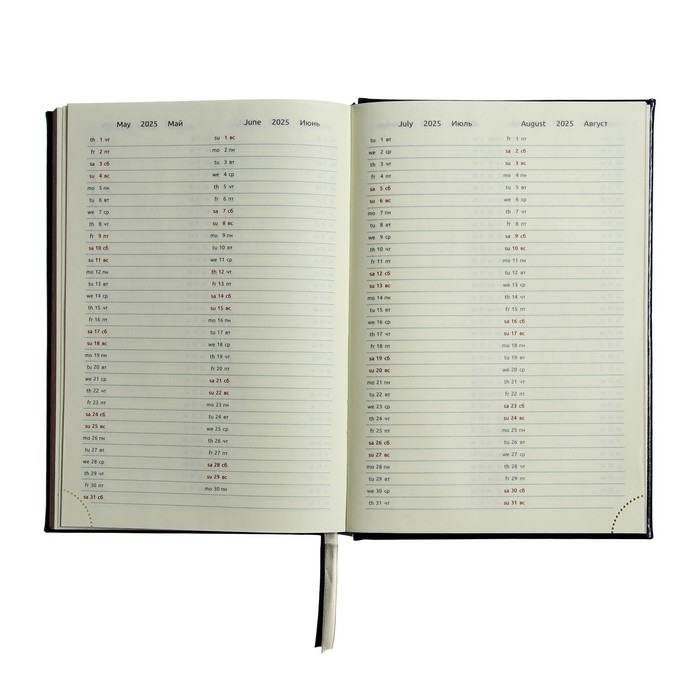 May 2025 Май
th 1 чт
fr 2 пт
sa 3 сб
su 4 вс
mo 5 пн
tu 6 вт
we 7 ср
th 8 чт
fr 9 пт
sa 10 сб
su 11 вс
mo 12 пн
tu 13 вт
we 14 ср
th 15 чт
fr 16 пт
sa 17 сб
su 18 вс
mo 19 пн
tu 20 вт
we 21 ср
th 22 чт
fr 23 пт
sa 24 сб
su 25 вс
mo 26 пн
tu 27 вт
we 28 ср
th 29 чт
fr 30 пт
sa 31 сб
June 2025 Июнь
su 1 вс
mo 2 пн
tu 3 вт
we 4 ср
th 5 чт
fr 6 пт
sa 7 сб
su 8 вс
mo 9 пн
tu 10 вт
we 11 ср
th 12 чт
fr 13 пт
sa 14 сб
su 15 вс
mo 16 пн
tu 17 вт
we 18 ср
th 19 чт
fr 20 пт
sa 21 сб
su 22 вс
mo 23 пн
tu 24 вт
we 25 ср
th 26 чт
fr 27 пт
sa 28 сб
su 29 вс
mo 30 пн
July 2025 Июль
tu 1 вт
we 2 ср
th 3 чт
fr 4 пт
sa 5 сб
su 6 вс
mo 7 пн
tu 8 вт
we 9 ср
th 10 чт
fr 11 пт
sa 12 сб
su 13 вс
mo 14 пн
tu 15 вт
we 16 ср
th 17 чт
fr 18 пт
sa 19 сб
su 20 вс
mo 21 пн
tu 22 вт
we 23 ср
th 24 чт
fr 25 пт
sa 26 сб
su 27 вс
mo 28 пн
tu 29 вт
we 30 ср
th 31 чт
August 2025 Август
fr 1 пт
sa 2 сб
su 3 вс
mo 4 пн
tu 5 вт
we 6 ср
th 7 чт
fr 8 пт
sa 9 сб
su 10 вс
mo 11 пн
tu 12 вт
we 13 ср
th 14 чт
fr 15 пт
sa 16 сб
su 17 вс
mo 18 пн
tu 19 вт
we 20 ср
th 21 чт
fr 22 пт
sa 23 сб
su 24 вс
mo 25 пн
tu 26 вт
we 27 ср
th 28 чт
fr 29 пт
sa 30 сб
su 31 вс